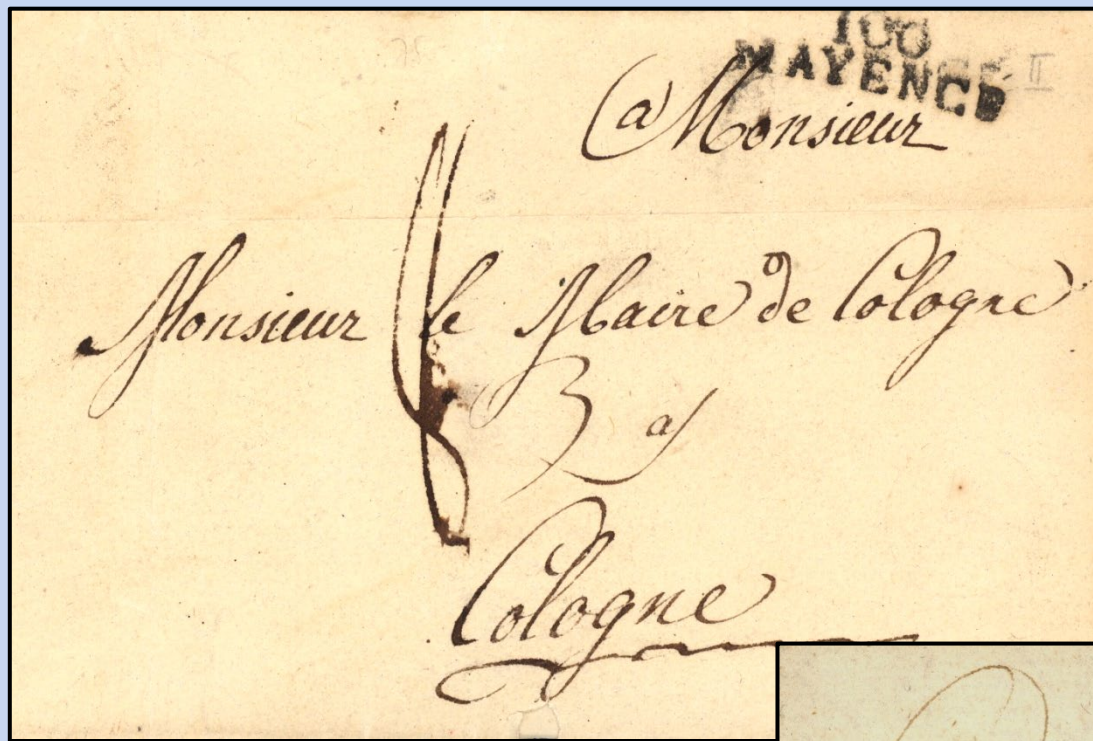 100
MAYENCE
II
a Monsieur
Monsieur le Maire de Cologne
a
Cologne